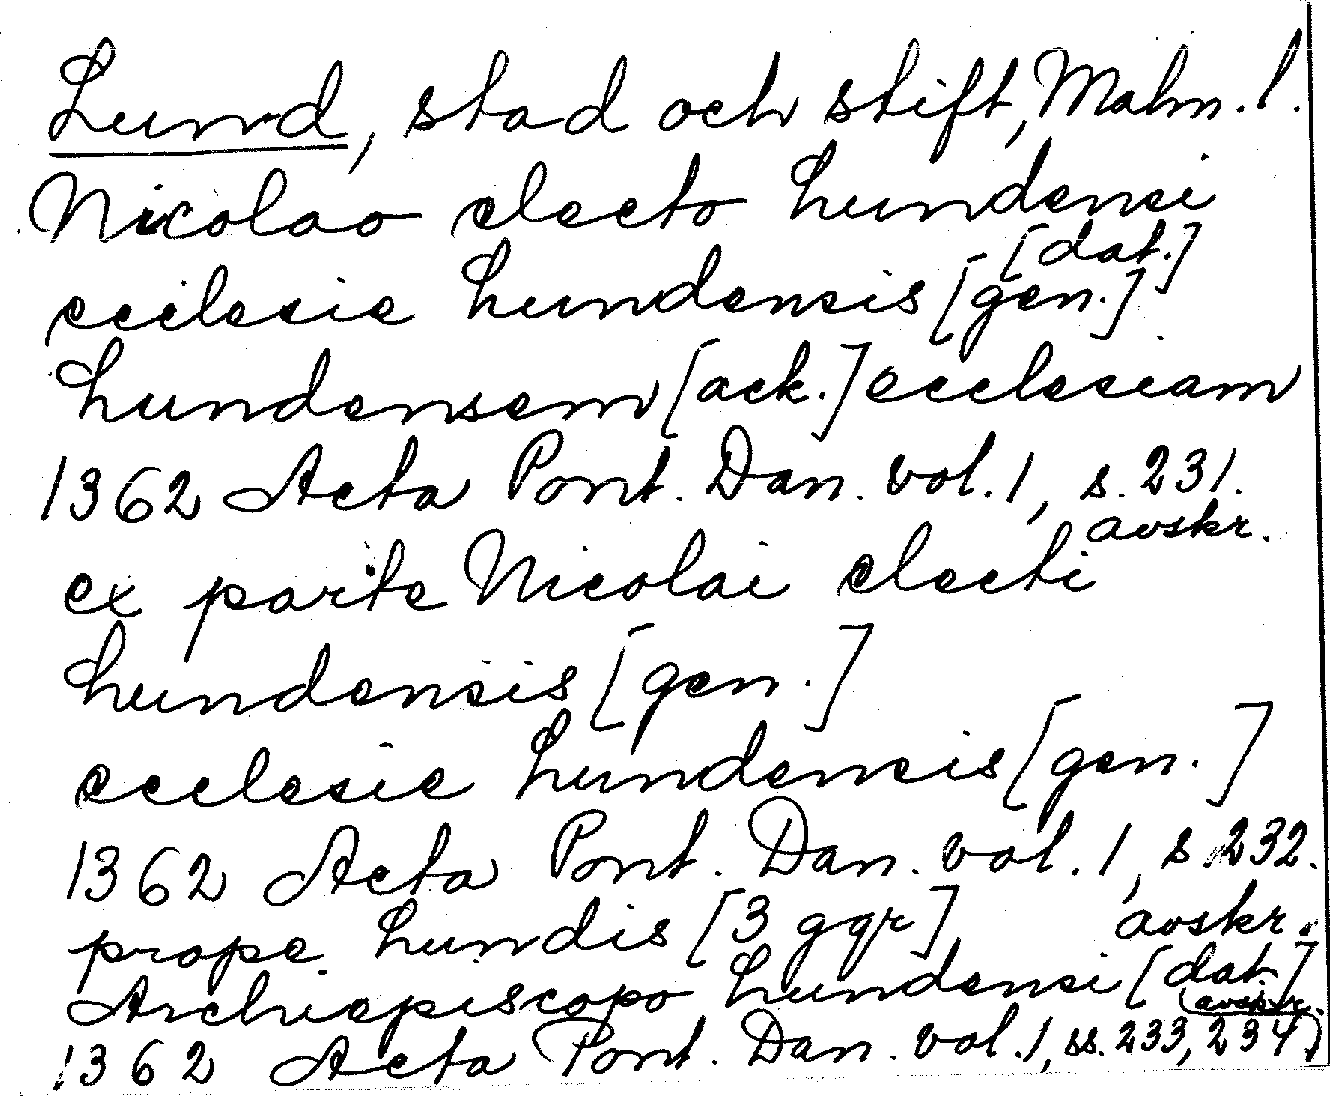 Lund, stad och stift, Malm. l.
Nicolao electo Lundensi
[dat.]
ecclesie Lundensis [gen.]
Lundensem [ack.] ecclesiam
1362 Acta Pont. Dan. vol. 1, s. 231.
avskr.
ex parte Nicolai electi
Lundensis [gen.]
ecclesie Lundensis [gen.]
1362 Acta Pont. Dan. vol. 1, s. 232.
avskr.
prope Lundis [3 ggr]
Archiepiscopo Lundensi [dat.]
(avskr.
1362 Acta Pont. Dan. vol. 1, ss. 233, 234)